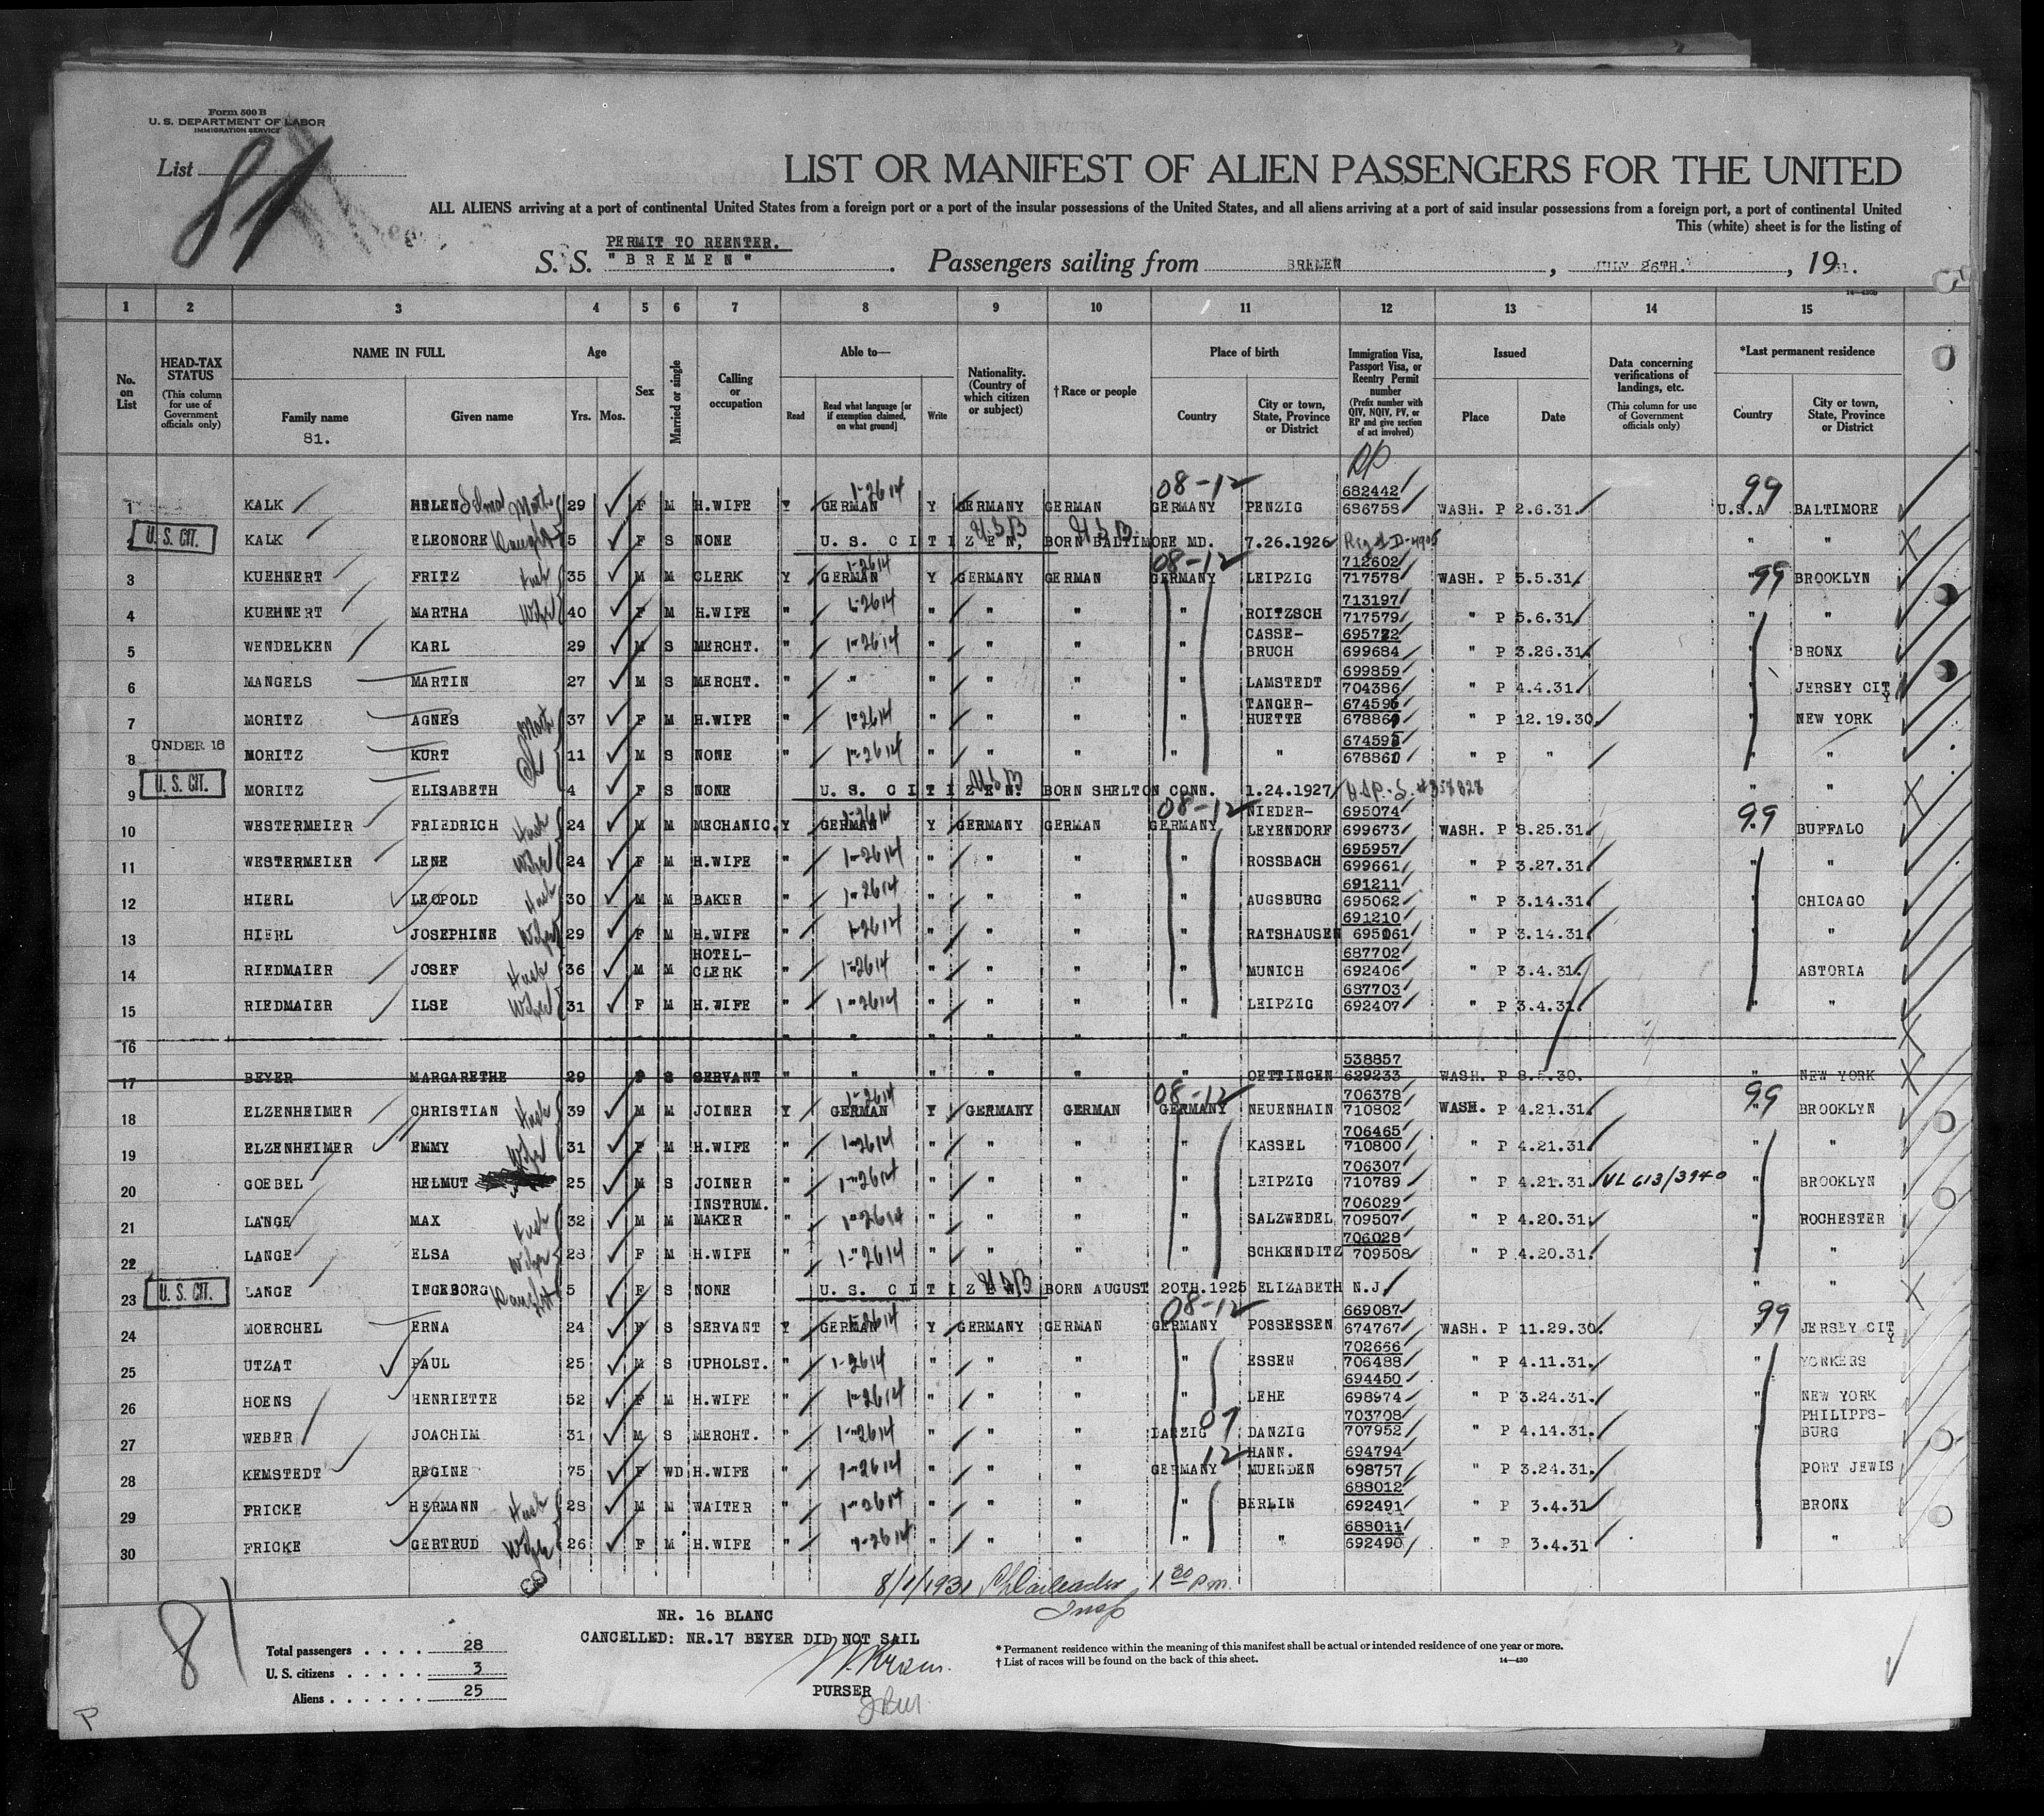 Form 500 B
U. S. DEPARTMENT OF LABOR
IMMIGRATION SERVICE
List 81
LIST OR MANIFEST OF ALIEN PASSENGERS FOR THE UNITED
ALL ALIENS arriving at a port of continental United States from a foreign port or a port of the insular possessions of the United States, and all aliens arriving at a port of said insular possessions from a foreign port, a port of continental United
This (white) sheet is for the listing of
PERMIT TO REENTER.
S. S. "BREMEN". Passengers sailing from BREMEN, JULY 26TH., 1931.
14—430b
1 2 3 4 5 6 7 8 9 10 11 12 13 14 15
No. on List
HEAD-TAX STATUS (This column for use of Government officials only)
NAME IN FULL Family name Given name
81.
Age Yrs. Mos.
Sex
Married or single
Calling or occupation
Able to— Read Read what language [or if exemption claimed, on what ground] Write
Nationality. (Country of which citizen or subject)
† Race or people
Place of birth Country City or town, State, Province or District
Immigration Visa, Passport Visa, or Reentry Permit number (Prefix number with QIV, NQIV, PV, or RP and give section of act involved)
Issued Place Date
Data concerning verifications of landings, etc. (This column for use of Government officials only)
*Last permanent residence Country City or town, State, Province or District
RP
1 KALK HELEN Selma Moth 29 F M H.WIFE Y GERMAN 1-2614 Y GERMANY GERMAN GERMANY 08-12 PENZIG 682442 686758 WASH. P 2.6.31. U.S.A 99 BALTIMORE
U.S. CIT. KALK ELEONORE Daught 5 F S NONE U. S. CITIZEN, USB BORN BALTIMORE MD. USB 7.26.1926 " "
3 KUEHNERT FRITZ Husb 35 M M CLERK Y GERMAN 1-2614 Y GERMANY GERMAN GERMANY 08-12 LEIPZIG 712602 717578 WASH. P 5.5.31. " 99 BROOKLYN
4 KUEHNERT MARTHA Wife 40 F M H.WIFE " 1-2614 " " " " ROITZSCH 713197 717579 " P 5.6.31. " "
5 WENDELKEN KARL 29 M S MERCHT. " 1-2614 " " " " CASSE-BRUCH 695722 699684 " P 3.26.31. " BRONX
6 MANGELS MARTIN 27 M S MERCHT. " " " " " " LAMSTEDT 699859 704386 " P 4.4.31. " JERSEY CITY
7 MORITZ AGNES Moth 37 F M H.WIFE " 1-2614 " " " " TANGER-HUETTE 674596 678860 " P 12.19.30. " NEW YORK
8 UNDER 16 MORITZ KURT Ch 11 M S NONE " 1-2614 " " " " " 674593 678861 " P " " "
9 U.S. CIT. MORITZ ELISABETH 4 F S NONE U. S. CITIZEN. USB BORN SHELTON CONN. 1.24.1927 " "
10 WESTERMEIER FRIEDRICH Husb 24 M M MECHANIC. Y GERMAN 1-2614 Y GERMANY GERMAN GERMANY 08-12 NIEDER-LEYENDORF 695074 699673 WASH. P 3.25.31. " 99 BUFFALO
11 WESTERMEIER LENE Wife 24 F M H.WIFE " 1-2614 " " " " ROSSBACH 695957 699661 " P 3.27.31. " "
12 HIERL LEOPOLD Husb 30 M M BAKER " 1-2614 " " " " AUGSBURG 691211 695062 " P 3.14.31. " CHICAGO
13 HIERL JOSEPHINE Wife 29 F M H.WIFE " 1-2614 " " " " RATSHAUSEN 691210 695061 " P 3.14.31. " "
14 RIEDMAIER JOSEF Husb 36 M M HOTEL-CLERK " 1-2614 " " " " MUNICH 687702 692406 " P 3.4.31. " ASTORIA
15 RIEDMAIER ILSE Wife 31 F M H.WIFE " 1-2614 " " " " LEIPZIG 687703 692407 " P 3.4.31. " "
16 " " " " " "
17 BEYER MARGARETHE 29 F S SERVANT " " " " " " OETTINGEN 538857 629233 WASH. P 8.5.30. " NEW YORK
18 ELZENHEIMER CHRISTIAN Husb 39 M M JOINER Y GERMAN 1-2614 Y GERMANY GERMAN GERMANY 08-12 NEUENHAIN 706378 710802 WASH. P 4.21.31. " 99 BROOKLYN
19 ELZENHEIMER EMMY Wife 31 F M H.WIFE " 1-2614 " " " " KASSEL 706465 710800 " P 4.21.31. " "
20 GOEBEL HELMUT 25 M S JOINER " 1-2614 " " " " LEIPZIG 706307 710789 " P 4.21.31. VL 613/3940 " BROOKLYN
21 LANGE MAX Husb 32 M M INSTRUM. MAKER " 1-2614 " " " " SALZWEDEL 706029 709507 " P 4.20.31. " ROCHESTER
22 LANGE ELSA Wife 28 F M H.WIFE " 1-2614 " " " " SCHKENDITZ 706028 709508 " P 4.20.31. " "
23 U.S. CIT. LANGE INGEBORG Daught 5 F S NONE U. S. CITIZEN USB BORN AUGUST 20TH.1925 ELIZABETH N.J. " "
24 MOERCHEL ERNA 24 F S SERVANT Y GERMAN 1-2614 Y GERMANY GERMAN GERMANY 08-12 POSSESSEN 669087 674767 WASH. P 11.29.30. " 99 JERSEY CITY
25 UTZAT PAUL 25 M S UPHOLST. " 1-2614 " " " " ESSEN 702666 706488 " P 4.11.31. " YONKERS
26 HOENS HENRIETTE 52 F M H.WIFE " 1-2614 " " " " LEHE 694450 698974 " P 3.24.31. " NEW YORK
27 WEBER JOACHIM 31 M S MERCHT. " 1-2614 " " " DANZIG 07 DANZIG 703708 707952 " P 4.14.31. " PHILIPPS-BURG
28 KEMSTEDT REGINE 75 F WD H.WIFE " 1-2614 " " " GERMANY 12 HANN. MUENDEN 694794 698757 " P 3.24.31. " PORT JEWIS
29 FRICKE HERMANN Husb 28 M M WAITER " 1-2614 " " " " BERLIN 688012 692491 " P 3.4.31 " BRONX
30 FRICKE GERTRUD Wife 26 F M H.WIFE " 1-2614 " " " " " 688011 692490 " P 3.4.31 " "
8/1/1931 Insp 1 30 p.m.
81
NR. 16 BLANC
CANCELLED: NR.17 BEYER DID NOT SAIL
PURSER
Total passengers . . . . 28
U. S. citizens . . . . . 3
Aliens . . . . . . 25
* Permanent residence within the meaning of this manifest shall be actual or intended residence of one year or more.
† List of races will be found on the back of this sheet. 14—430
P